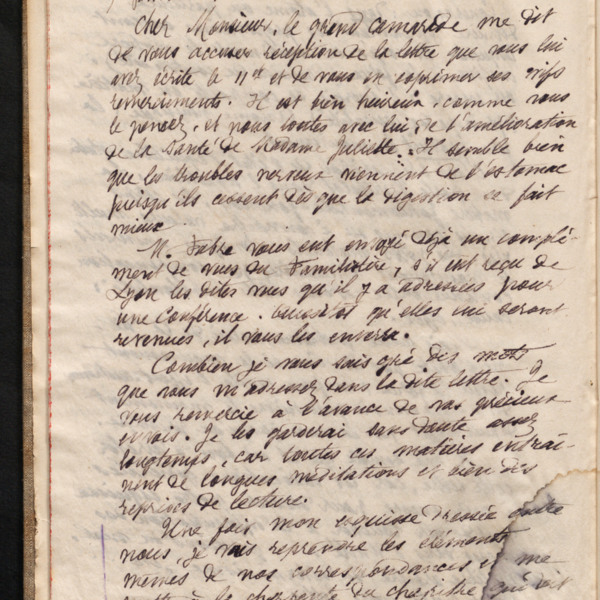 Cher Monsieur, le grand camarade me dit
de vous accuser réception de la lettre que vous lui
avez écrite le 11 et de vous en exprimer ses vifs
remerciements. Il est bien heureux, comme vous
le pensez, et nous toutes avec lui de l'amélioration
de la Santé de Madame Juliette. Il semble bien
que les troubles nerveux viennent de l'estomac
puisqu'ils cessent dès que la digestion se fait
mieux.
M. Fabre vous eut envoyé déjà un complé-
ment de vues du Familistère, s'il eut reçu de
Lyon les dites vues qu'il y a adressées pour
une conférence. Aussitôt qu'elles lui seront
revenues, il vous les enverra.
Combien je vous sais gré des mots
que vous m'adressez dans la dite lettre. Je
vous remercie à l'avance de vos précieux
envois. Je les garderai sans doute assez
longtemps, car toutes ces matières entraî-
nent de longues méditations et bien des
reprises de lecture.
Une fois mon esquisse dressée entre
nous, je vais reprendre les éléments
mêmes de nos correspondances et me
à la du chapitre qui doit